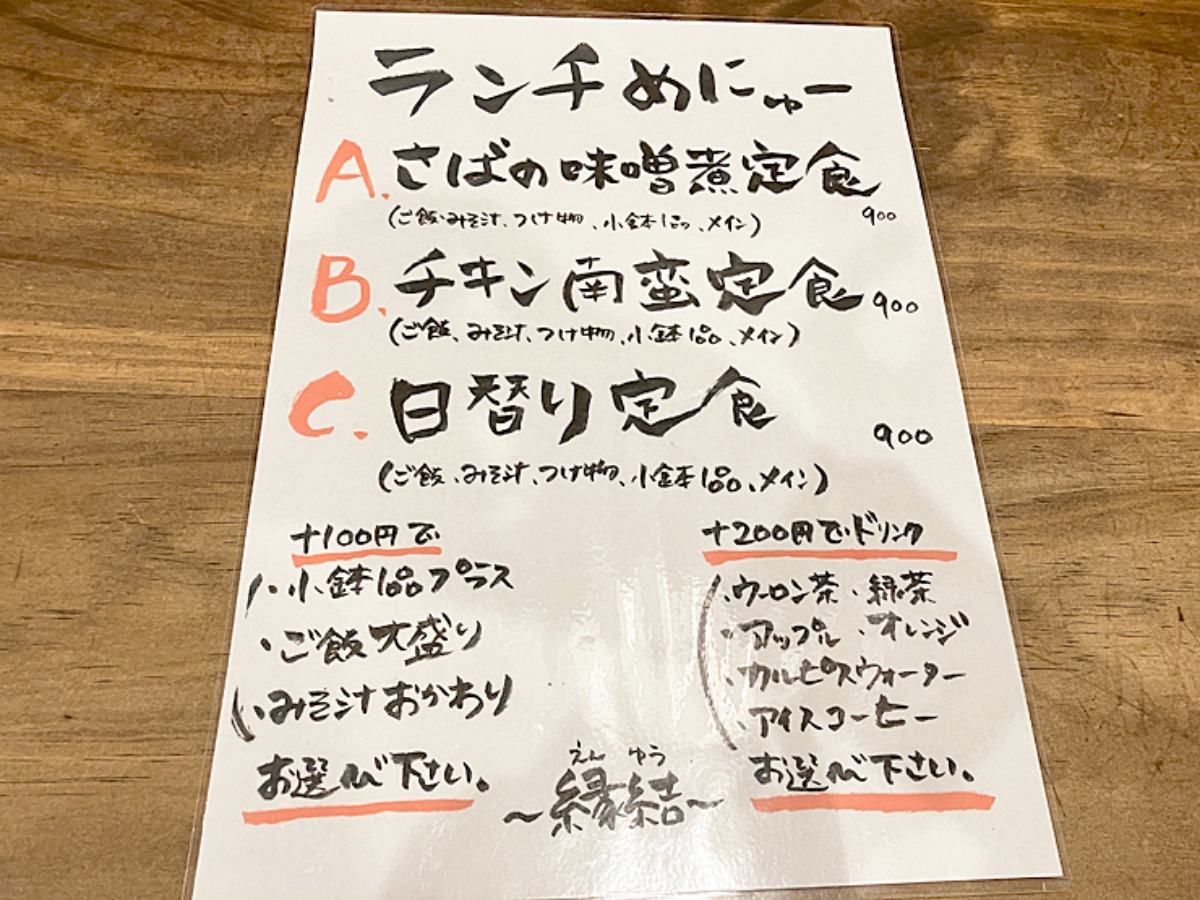 ランチめにゅー
A. さばの味噌煮定食
(ご飯、みそ汁、つけ物、小鉢1品、メイン) 900
B. チキン南蛮定食 900
(ご飯、みそ汁、つけ物、小鉢1品、メイン)
C. 日替り定食 900
(ご飯、みそ汁、つけ物、小鉢1品、メイン)
+100円で
・小鉢1品プラス
・ご飯大盛り
・みそ汁おかわり
お選び下さい。
+200円で・ドリンク
・ウーロン茶・緑茶
・アップル・オレンジ
・カルピスウォーター
・アイスコーヒー
お選び下さい。
えん ゆう
～縁結～